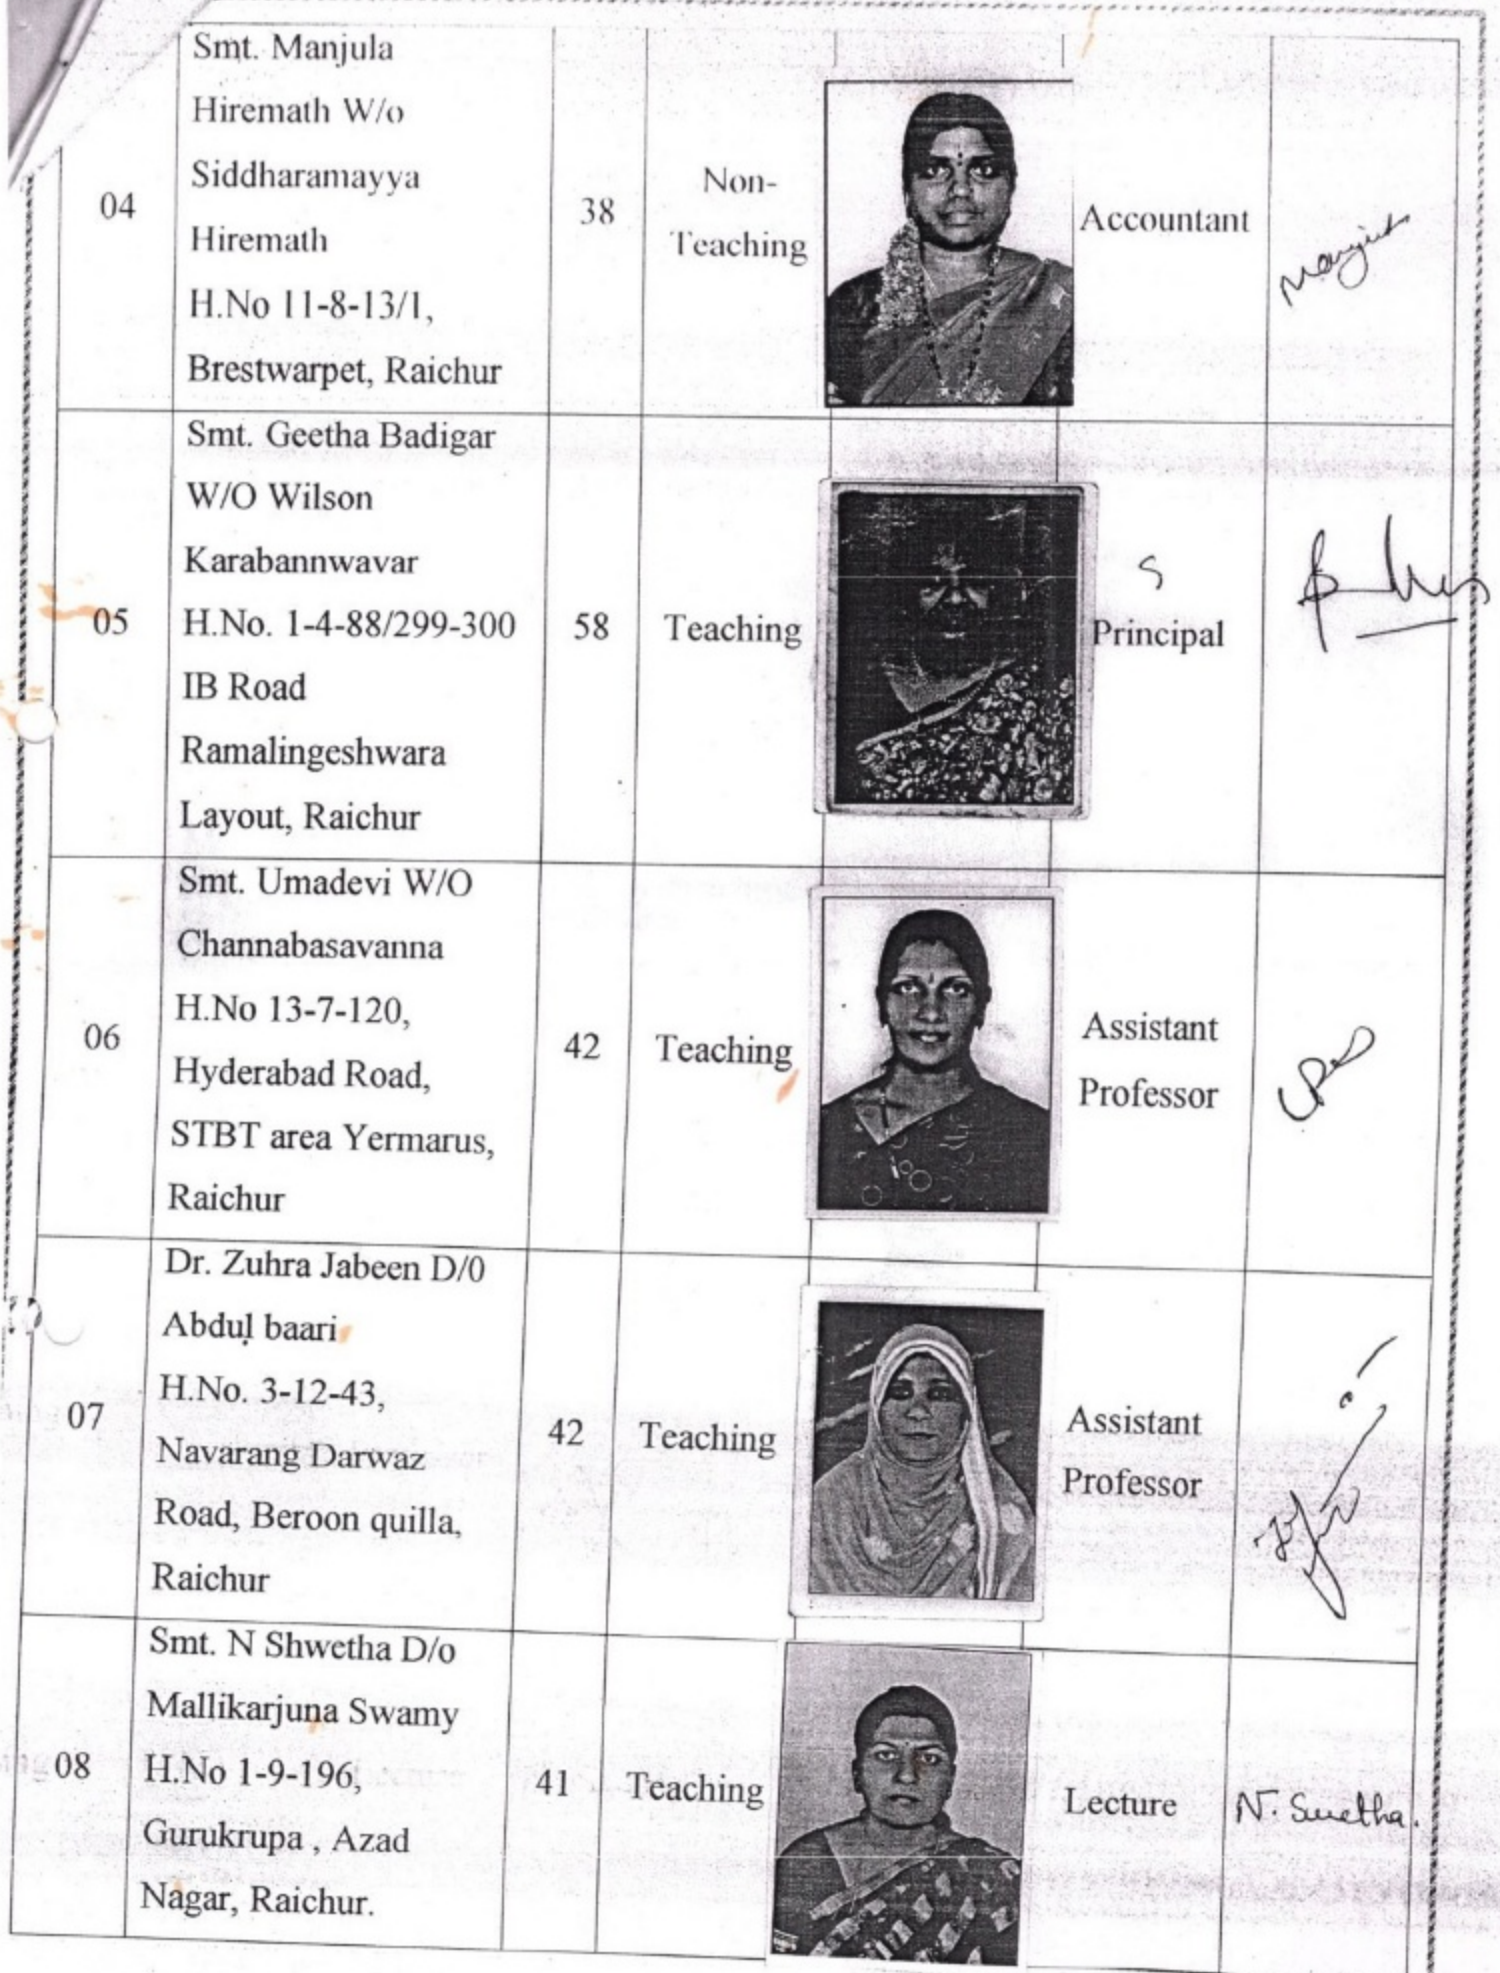 04
Smt. Manjula
Hiremath W/o
Siddharamayya
Hiremath
H.No 11-8-13/1,
Brestwarpet, Raichur
38
Non-
Teaching
Accountant
05
Smt. Geetha Badigar
W/O Wilson
Karabannwavar
H.No. 1-4-88/299-300
IB Road
Ramalingeshwara
Layout, Raichur
58
Teaching
Principal
06
Smt. Umadevi W/O
Channabasavanna
H.No 13-7-120,
Hyderabad Road,
STBT area Yermarus,
Raichur
42
Teaching
Assistant
Professor
07
Dr. Zuhra Jabeen D/0
Abdul baari
H.No. 3-12-43,
Navarang Darwaz
Road, Beroon quilla,
Raichur
42
Teaching
Assistant
Professor
08
Smt. N Shwetha D/o
Mallikarjuna Swamy
H.No 1-9-196,
Gurukrupa , Azad
Nagar, Raichur.
41
Teaching
Lecture
N. Swetha.